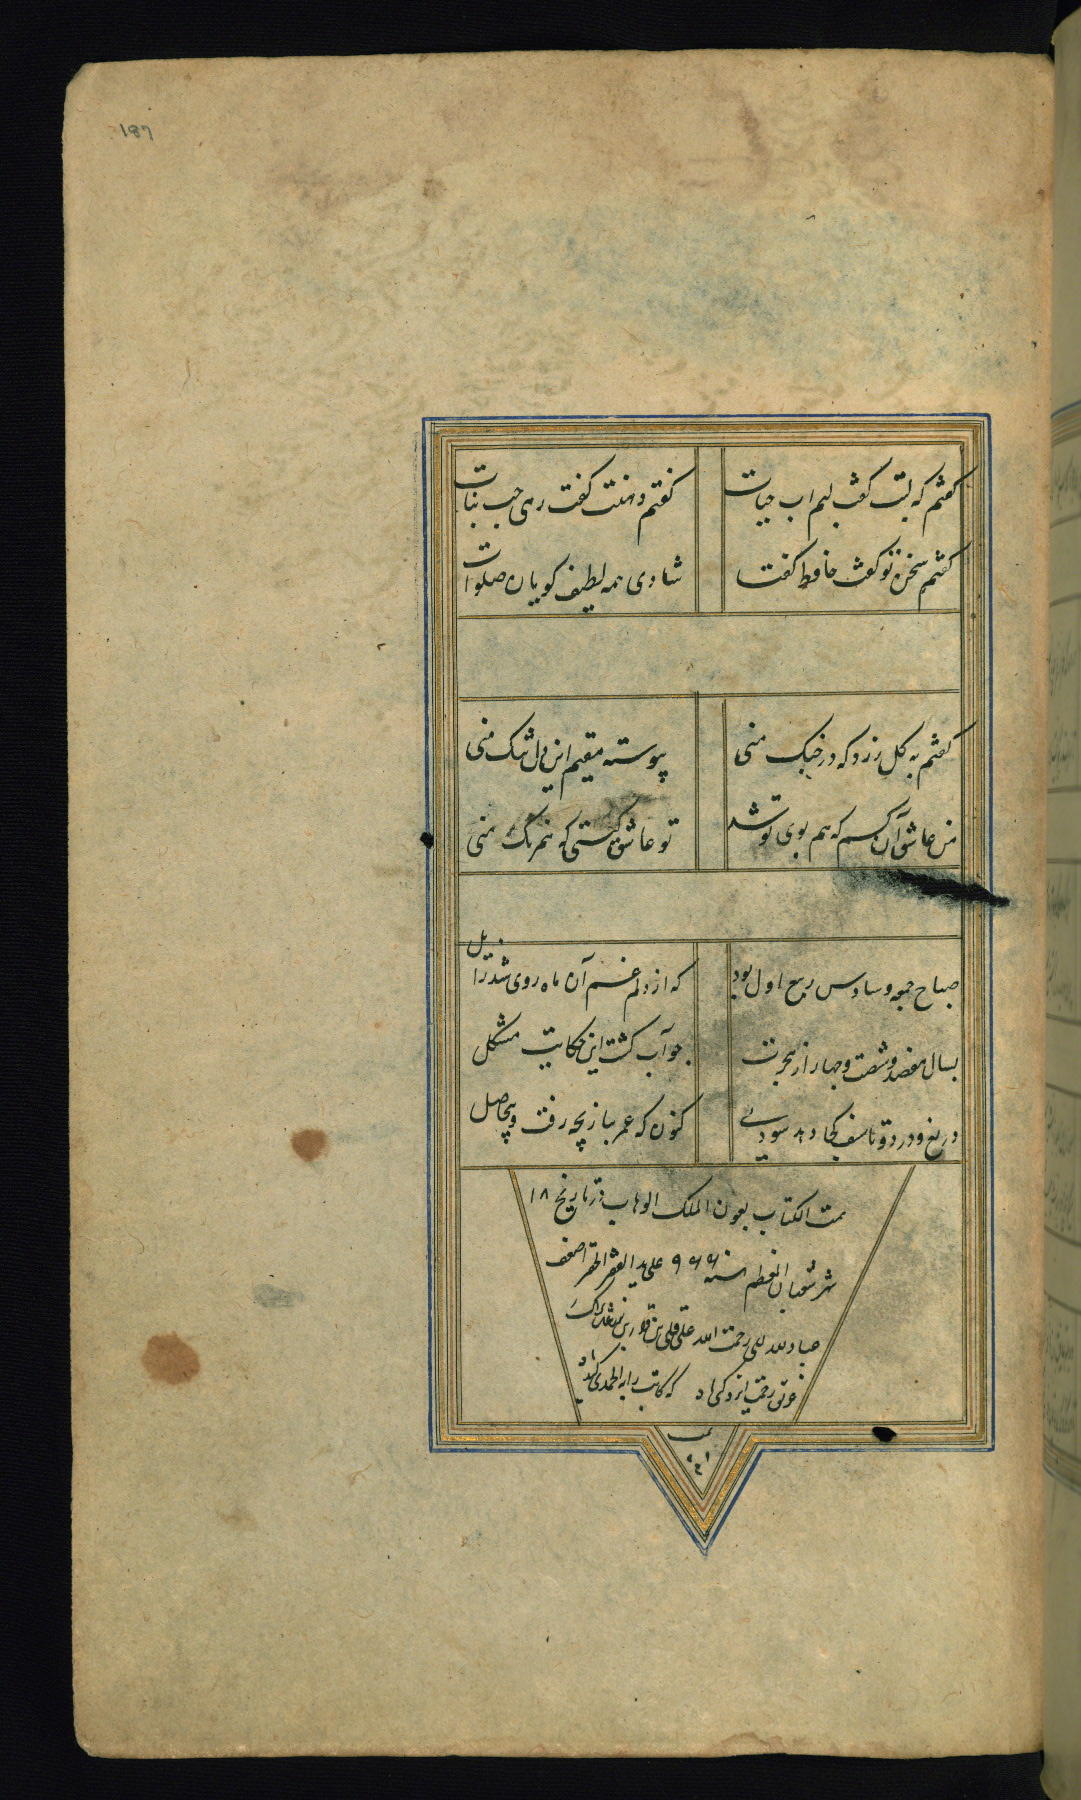 187
گفتم که لبت گفت لبم آب حیات
گفتم دهنت گفت زهی حب نبات
گفتم سخن تو گفت حافظ گفتا
شادی همه لطیف گویان صلوات
گفتم به گل زرد که در خنک منی
پیوسته مقیم این دل تنک منی
من عاشق آن کسم که هم بوی تو شد
تو عاشق کیستی که همرنک منی
صباح جمعه و سادس ربیع اول بود
که از دلم غم آن ماه روی شد زایل
بسال هفصد و شصت و چهار از هجرت
جو آب کشت این حکایت مشکل
دریغ و درد و تاسف کجا دهد سودی
کنون که عمر ببازیچه رفت و بیحاصل
تمت الکتاب بعون الملک الوهاب در تاریخ ۱۸
شهر شعبان المعظم سنه ۹۶۶ علی ید الفقیر الحقیر اضعف
عباد الله رحمت الله قلی بن
غریق رحمت ایزد کسی باد که کاتب را به الحمدی کند یاد
تمت